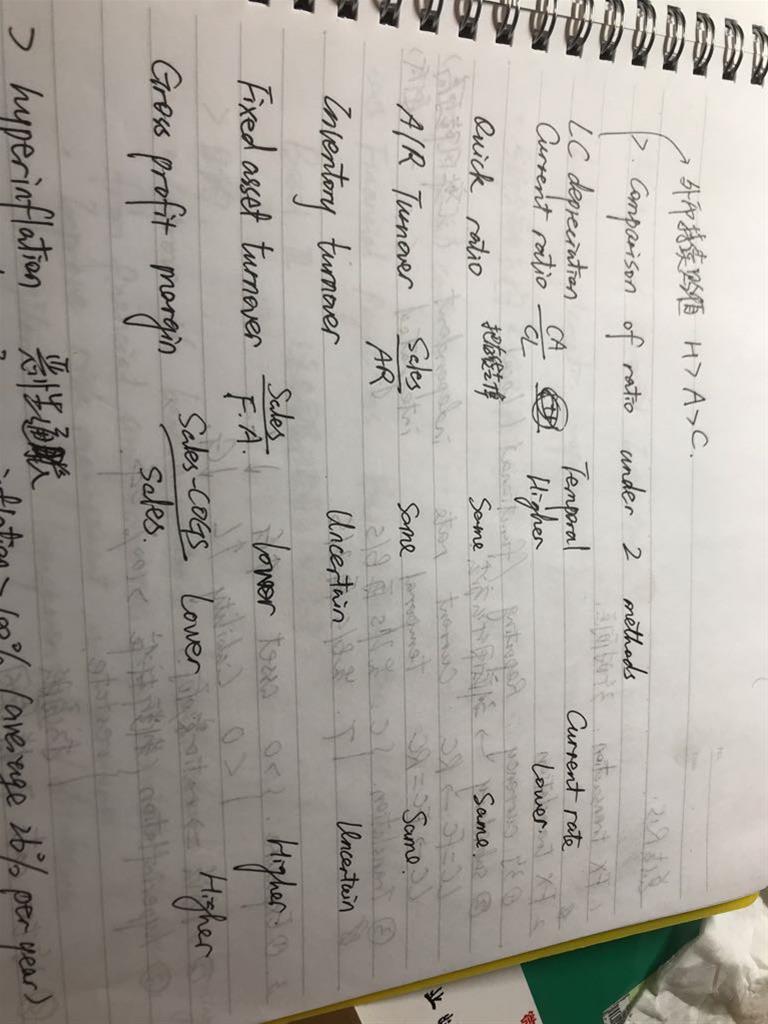 外币持续贬值 H>A>C.
> Comparison of ratio under 2 methods
LC depreciation Temporal Current rate
Current ratio CA/CL Higher Lower
Quick ratio Same Same.
A/R Turnover Sales/AR Same Same.
Inventory turnover Uncertain Uncertain
Fixed asset turnover Sales/F.A. Lower Higher
Gross profit margin Sales-COGS/Sales. Lower Higher
> hyperinflation 恶性通胀
inflation > 100% (average 26% per year)